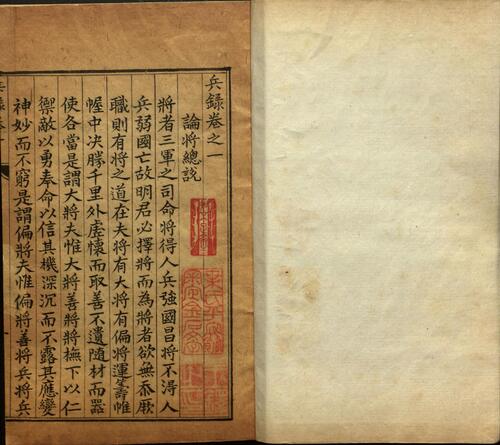 兵錄卷之一
論將總說
將者三軍之司命將得人兵強國昌將不得人
兵弱國亡故明君必擇將而為將者欲無忝厥
職則有將之道在夫將有大將有偏將運籌帷
幄中决勝千里外虛懷而取善不遺隨材而器
使各當是謂大將夫惟大將善將將撫下以仁
禦敵以勇奉命以信其機深沉而不露其應變
神妙而不窮是謂偏將夫惟偏將善將兵將兵